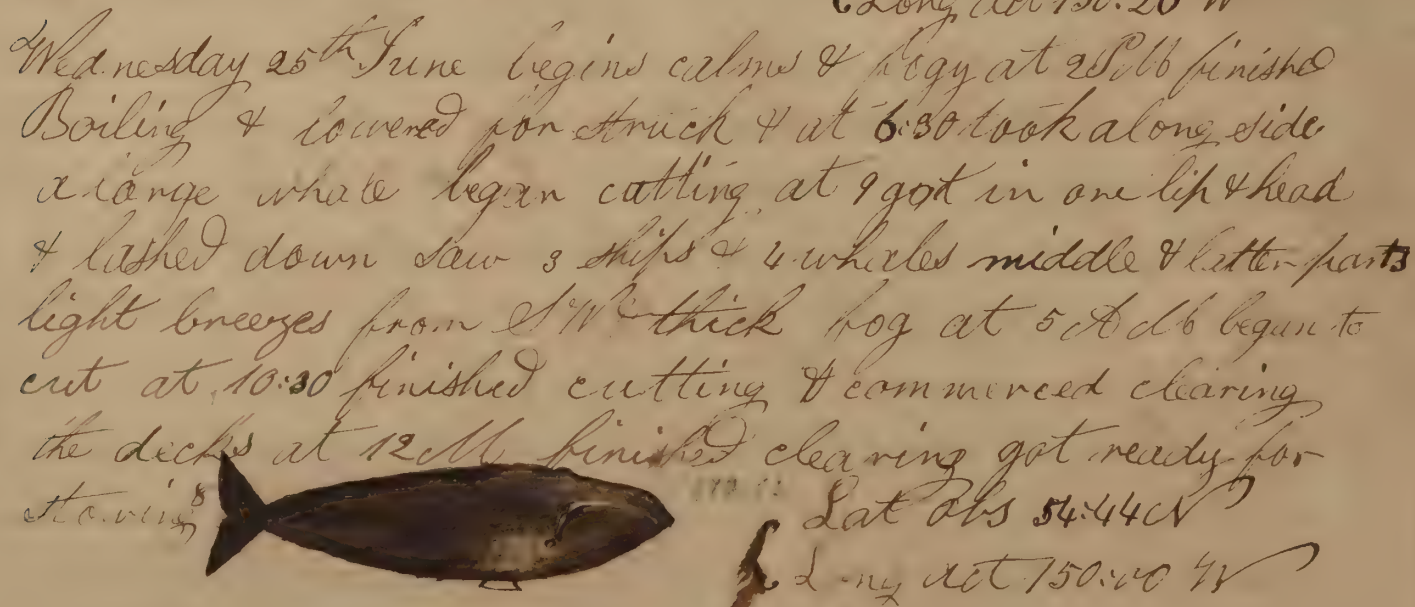 Long act 150:20 W
Wednesday 25th June begins calms & fogy at 2 PM finished
Boiling & lowered for struck & at 6:30 took along side
a large whale began cutting at 9 got in one lip & head
& lashed down saw 3 ships & 4 whales middle & latter parts
light breezes from SW thick fog at 5 AM began to
cut at 10:30 finished cutting & commenced clearing
the decks at 12 M finished clearing got ready for
stowing
Lat obs 54:44 N
Long act 150:00 W